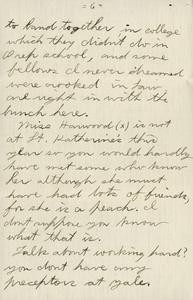 -6-
to band together, in college
which they didn't do in
Prep school, and some
fellows I never dreamed
were crooked in Law,
are right in with the
bunch here.
Miss Harwood (x) is not
at St. Katherine's this
year so you would hardly
have met some who know
her although she must
have had lots of friends,
for she is a peach. I
don't suppose you know
what that is.
Talk about working hard?
you don't have any
preceptors at Yale.